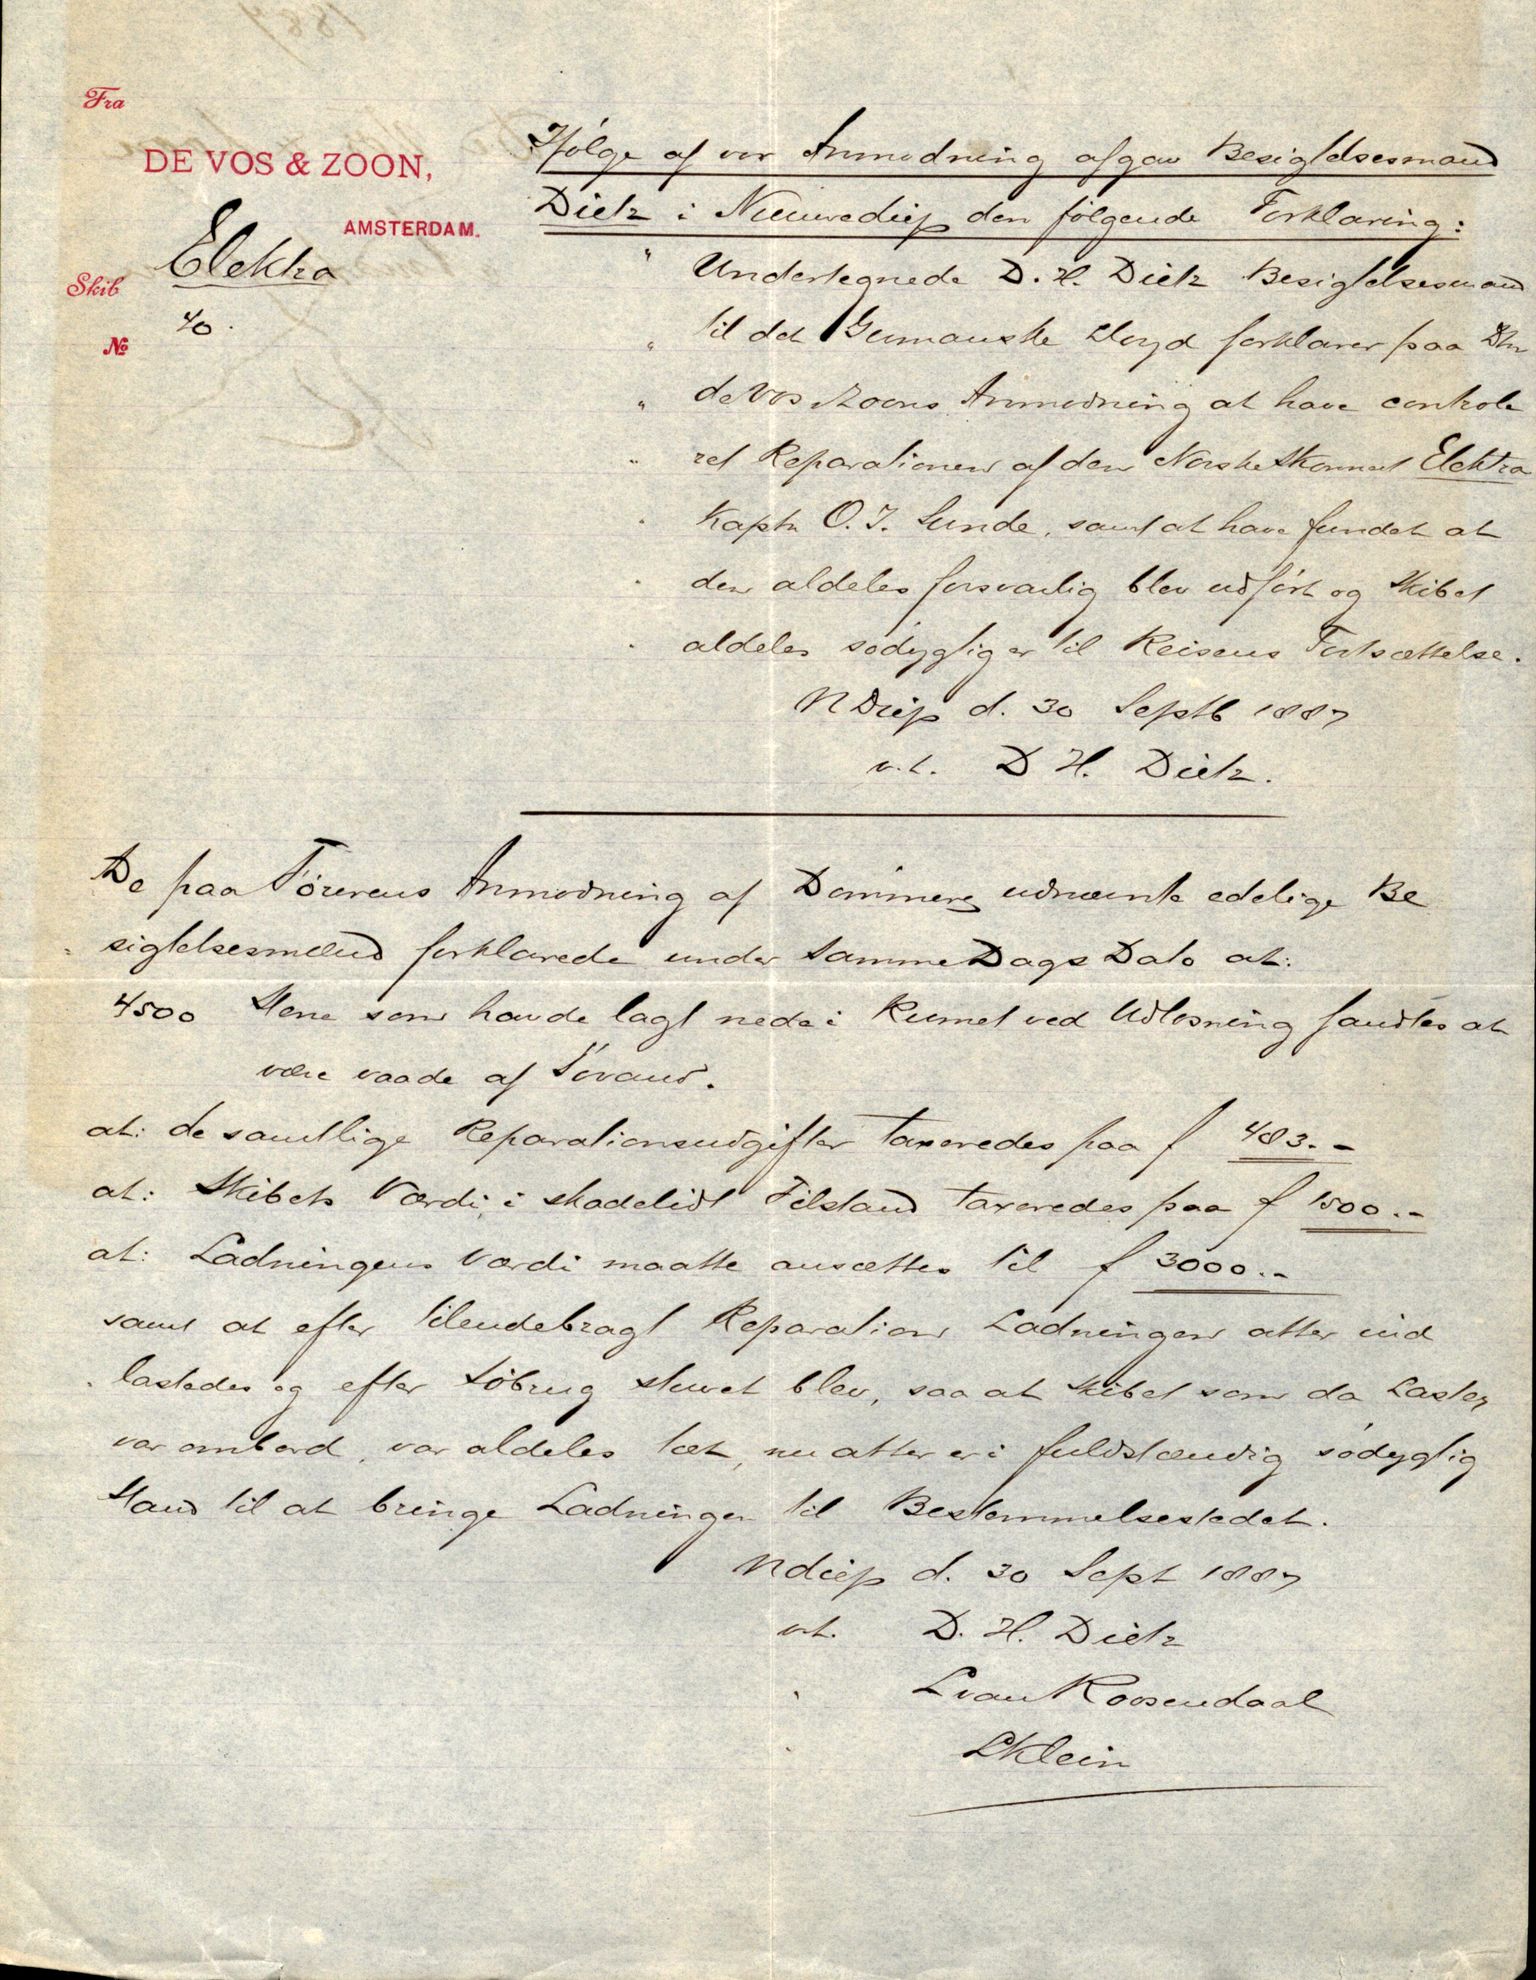 Fra
DE VOS & ZOON,
AMSTERDAM.
Skib Elektra
No 40.
Ifølge af vor Anmodning afgav Besigtelsesmand
Dietz i Nieuwediep den følgende Forklaring:
" Undertegnede D. H. Dietz Besigtelsesmand
" til det Germanske Lloyd forklarer paa Dhr
" de Vos & Zoons Anmodning at have controle
" ret Reparationen af den Norske Skonnert Elektra
" Kaptn O. J. Sunde, samt at have fundet at
" den aldeles forsvarlig blev udført og Skibet
" aldeles sødygtig er til Reisens Fortsættelse.
NDiep d. 30 Septb 1887
v.t. D H. Dietz.
De paa Førerens Anmodning af Dommeren udnævnte edelige Be
sigtelsesmænd forklarede under samme Dags Dato at:
4500 Stene som havde lagt nede i Rumet ved Udlosning fandtes at
være vaade af Søvand.
at: de samtlige Reparationsudgifter taxeredes paa f 483.-
at: Skibets Værdi i skadelidt Tilstand taxeredes paa f 1500.-
at: Ladningens Værdi maatte ansættes til f 3000.-
samt at efter tilendebragt Reparation Ladningen atter ind
lastedes og efter Søbrug stuvet blev, saa at Skibet som da Lasten
var ombord, var aldeles tæt, nu atter er i fuldstændig sødygtig
Stand til at bringe Ladningen til Bestemmelsestedet.
Ndiep d. 30 Sept 1887
v.t. D. H. Dietz
" L van Roosendaal
" L Klein